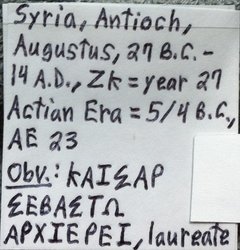 Syria, Antioch,
Augustus, 27 B.C.-
14 A.D., Zk = year 27
Actian Era = 5/4 B.C.,
AE 23
Obv.: KAIΣAP
ΣEBAΣTΩ
APXIEPEI, laureate